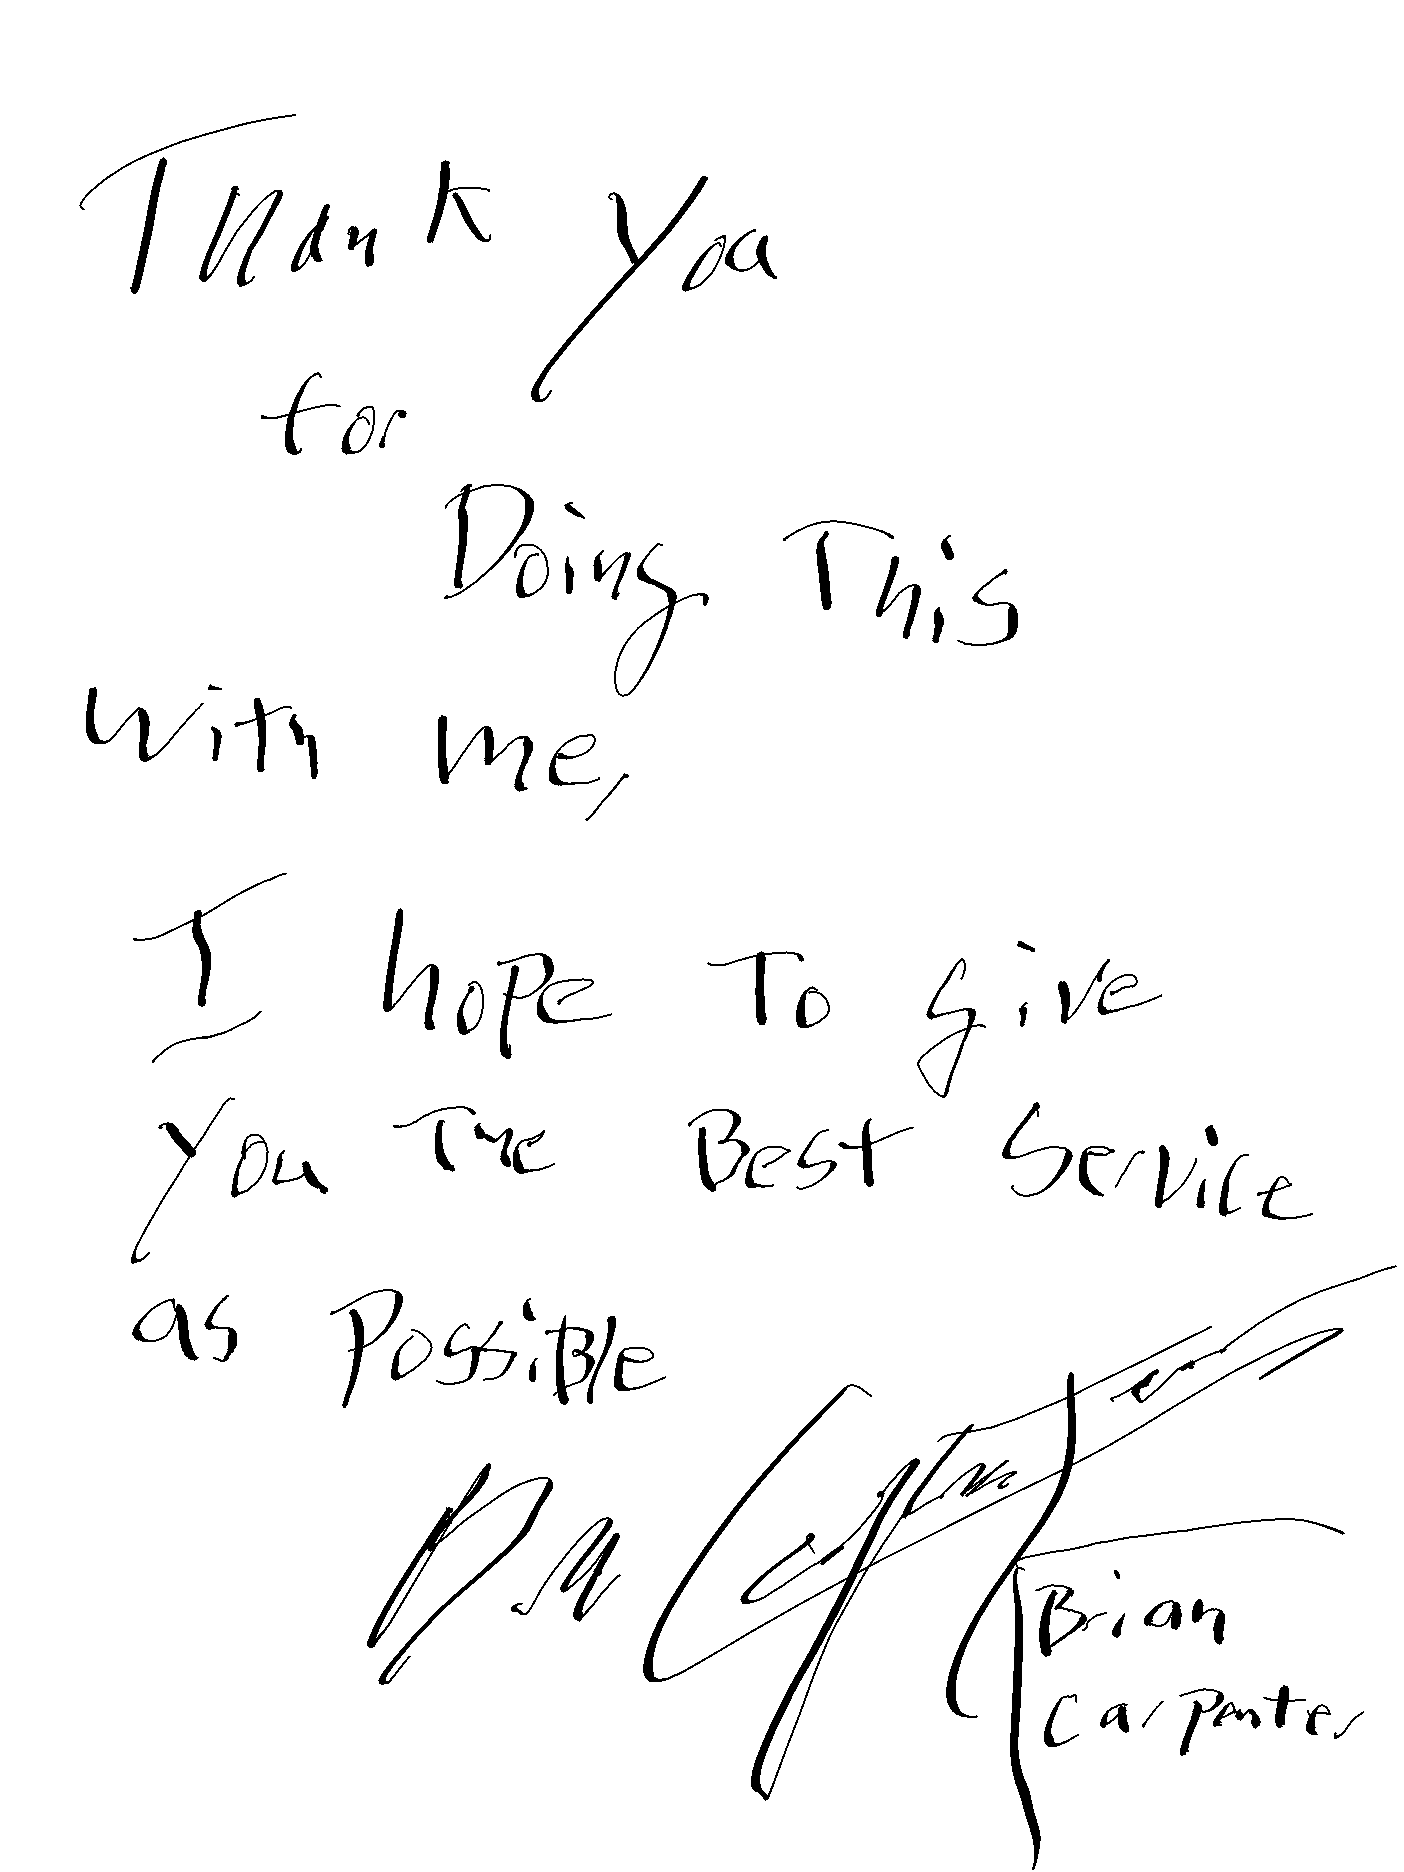 Thank you
for
Doing This
with me,
I hope To give
you The Best Service
as Possible
Brian
Carpenter